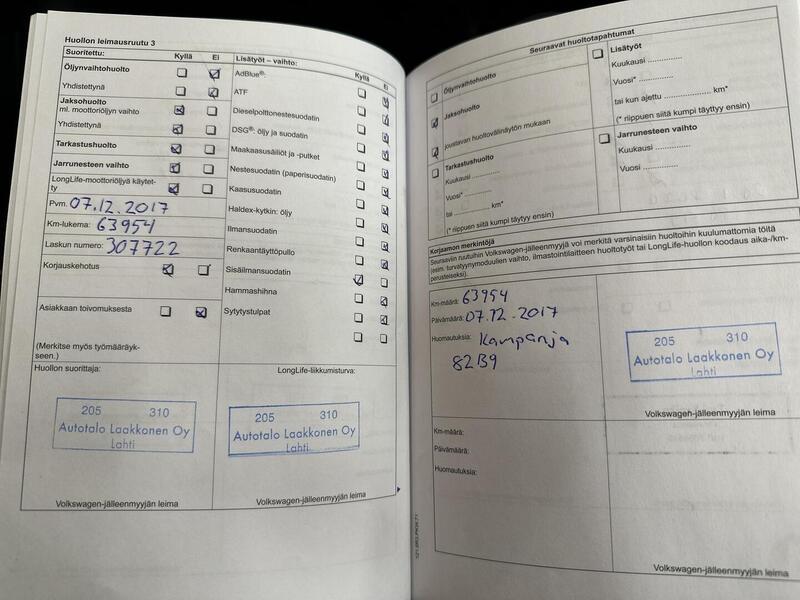 Huollon leimausruutu 3
Suoritettu: Kyllä Ei
Öljynvaihtohuolto
Yhdistettynä
Jaksohuolto
ml. moottoriöljyn vaihto
Yhdistettynä
Tarkastushuolto
Jarrunesteen vaihto
LongLife-moottoriöljyä käytet-
ty
Pvm. 07.12.2017
Km-lukema: 63954
Laskun numero: 307722
Korjauskehotus
Asiakkaan toivomuksesta
(Merkitse myös työmääräyk-
seen.)
Huollon suorittaja:
205 310
Autotalo Laakkonen Oy
Lahti
Volkswagen-jälleenmyyjän leima
Lisätyöt – vaihto: Kyllä Ei
AdBlue®:
ATF
Dieselpolttonestesuodatin
DSG®: öljy ja suodatin
Maakaasusäiliöt ja -putket
Nestesuodatin (paperisuodatin)
Kaasusuodatin
Haldex-kytkin: öljy
Ilmansuodatin
Renkaantäyttöpullo
Sisäilmansuodatin
Hammashihna
Sytytystulpat
LongLife-liikkumisturva:
205 310
Autotalo Laakkonen Oy
Lahti
Volkswagen-jälleenmyyjän leima
Seuraavat huoltotapahtumat
Öljynvaihtohuolto
Jaksohuolto
joustavan huoltovälinäytön mukaan
Tarkastushuolto
Kuukausi ..............
Vuosi* ..............
tai .............. km*
(* riippuen siitä kumpi täytyy ensin)
Lisätyöt
Kuukausi ..............
Vuosi* ..............
tai kun ajettu .............. km*
(* riippuen siitä kumpi täyttyy ensin)
Jarrunesteen vaihto
Kuukausi ..............
Vuosi ..............
Korjaamon merkintöjä
Seuraaviin ruutuihin Volkswagen-jälleenmyyjä voi merkitä varsinaisiin huoltoihin kuulumattomia töitä
(esim. turvatyynymoduulien vaihto, ilmastointilaitteen huoltotyöt tai LongLife-huollon koodaus aika-/km-
perusteiseksi).
Km-määrä: 63954
Päivämäärä: 07.12.2017
Huomautuksia: Kampanja
82B9
205 310
Autotalo Laakkonen Oy
Lahti
Volkswagen-jälleenmyyjän leima
Km-määrä:
Päivämäärä:
Huomautuksia:
Volkswagen-jälleenmyyjän leima